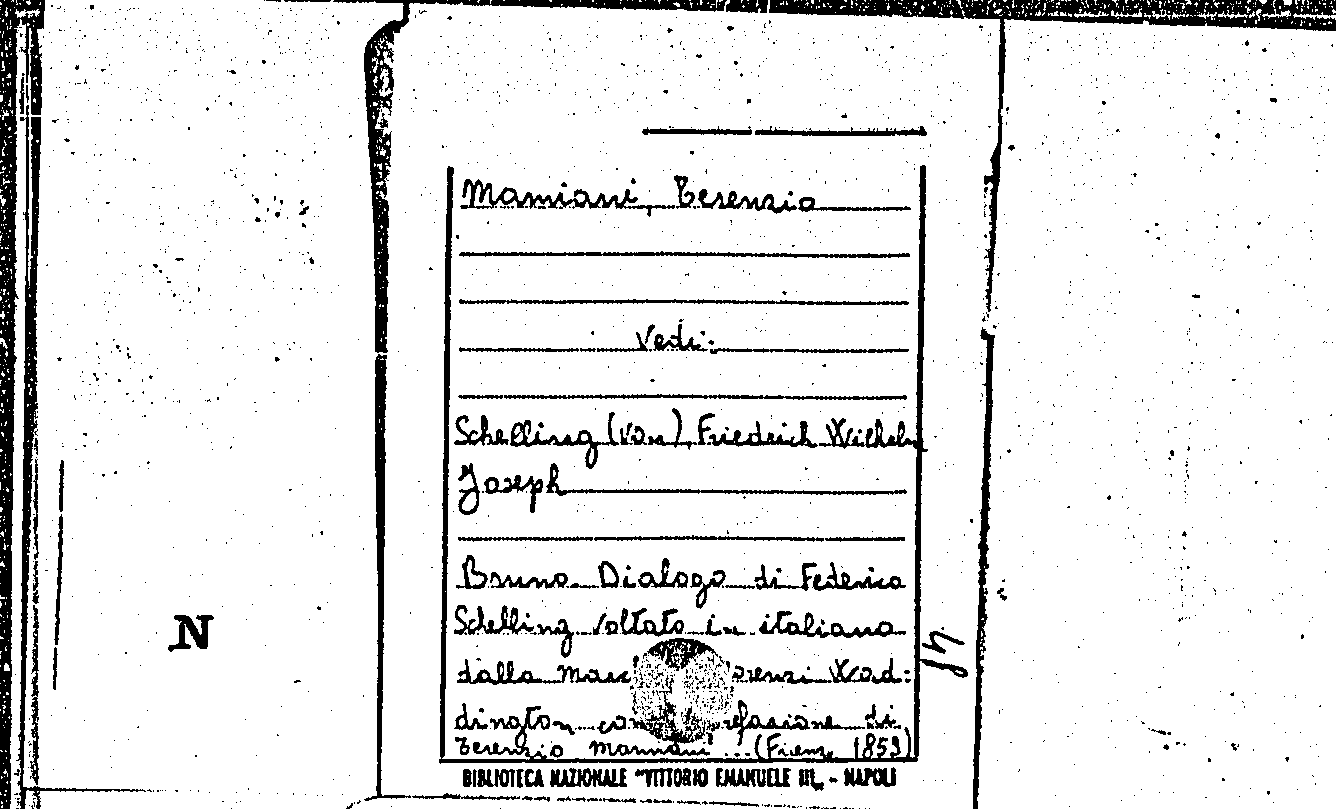 Mamiani, Terenzio
Vedi:
Schelling (von), Friedrich Wilhelm
Joseph
Bruno. Dialogo di Federico
Schelling voltato in italiano
dalla Wad:
dington di
Terenzio Mamiani ... (Firenz,
BIBLIOTECA NAZIONALE "VITTORIO EMANUELE III„ - NAPOLI
N
48